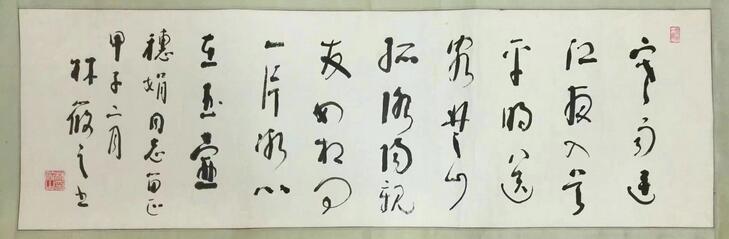 寒雨连
江夜入吴
平明送
客楚山
孤洛阳亲
友如相问
一片冰心
在玉壶
穗娟同志留正
甲子二月
林筱之书